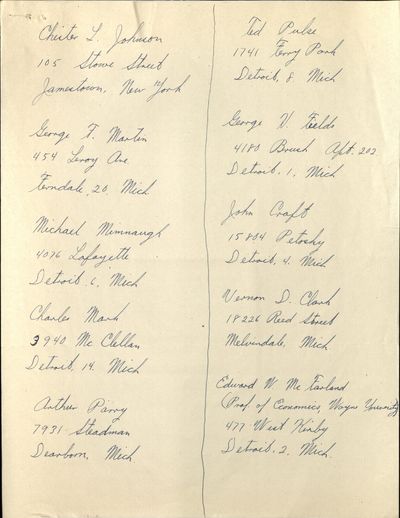 Chester L Johnson
105 Stowe Street
Jamestown, New York
George F. Martin
454 Leroy Ave.
Ferndale, 20, Mich
Michael Mimnaugh
4096 Lafayette
Detroit, 6, Mich
Charles Mark
3940 Mc Clellan
Detroit, 14, Mich
Arthur Parry
7931 Steadman
Dearborn, Mich
Ted Pulse
1741 Ferry Park
Detroit, 8 Mich
George N. Fields
4180 Brush Apt. 202
Detroit, 1, Mich
John Craft
15804 Petosky
Detroit, 4, Mich
Vernon D. Clark
18226 Reed Street
Melvindale, Mich
Edward W. Mc Farland
(Prof. of Economics, Wayne University
477 West Kirby
Detroit, 2, Mich.